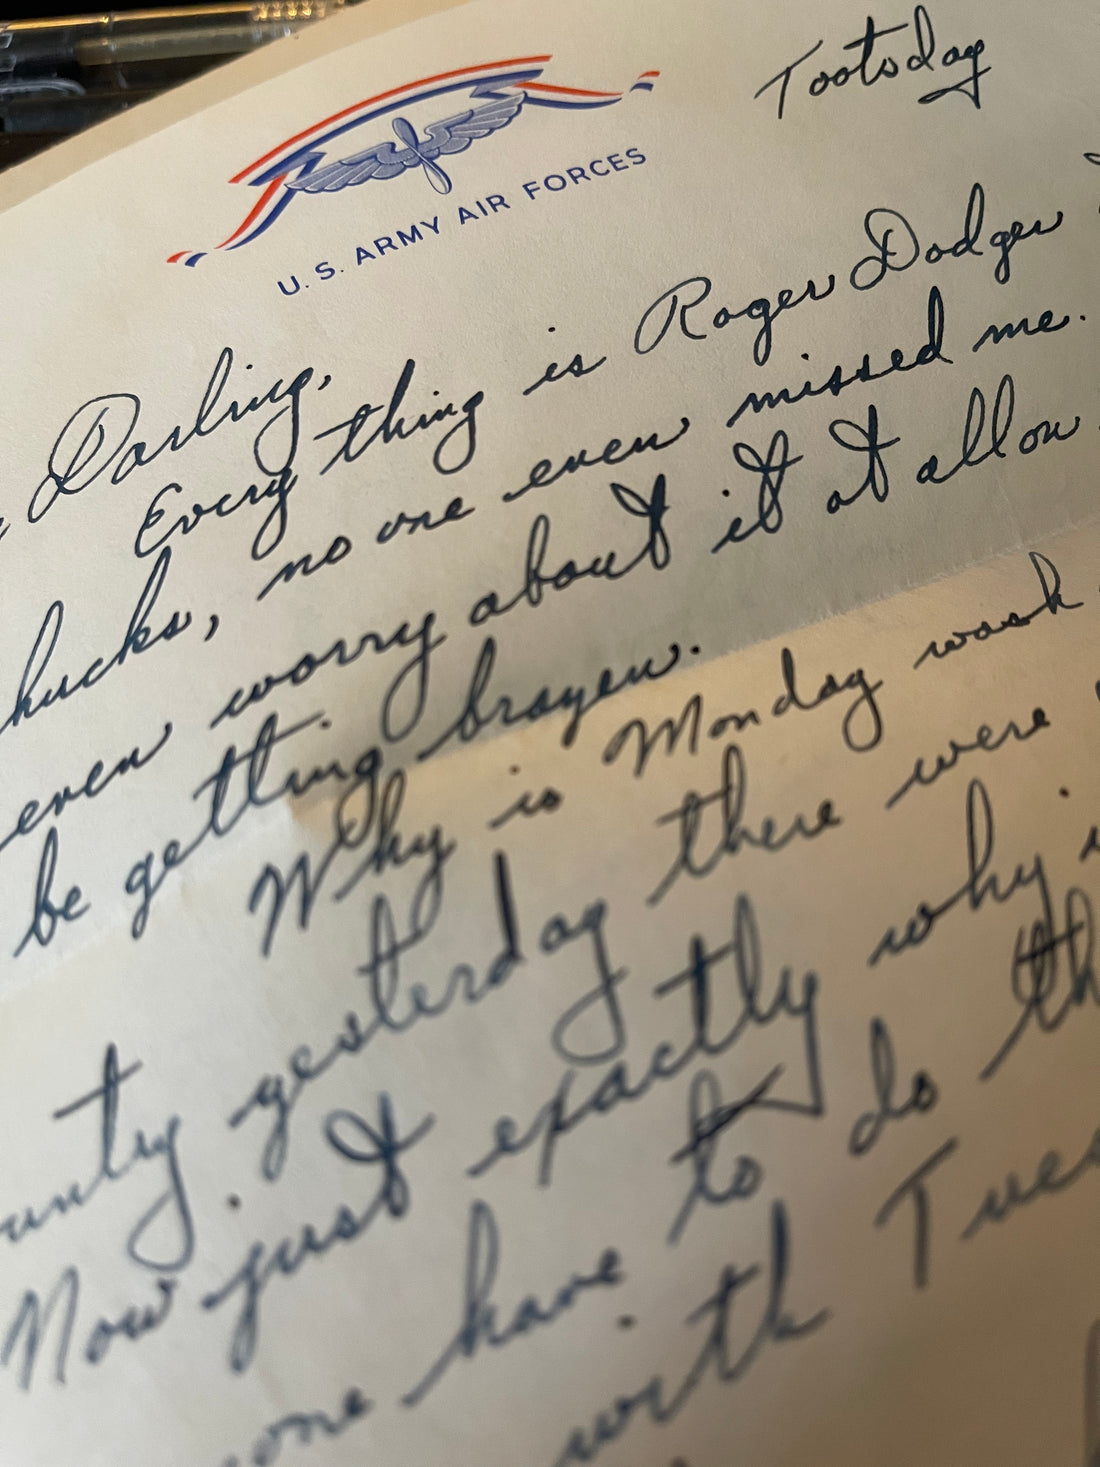 Tootsday
U.S. ARMY AIR FORCES
Darling,
Every thing is Roger Dodger
hucks, no one even missed me.
even worry about it at all on
be getting brazen.
Why is Monday wash
untry yesterday there were
Now just exactly why i
one have to do th
with Tues